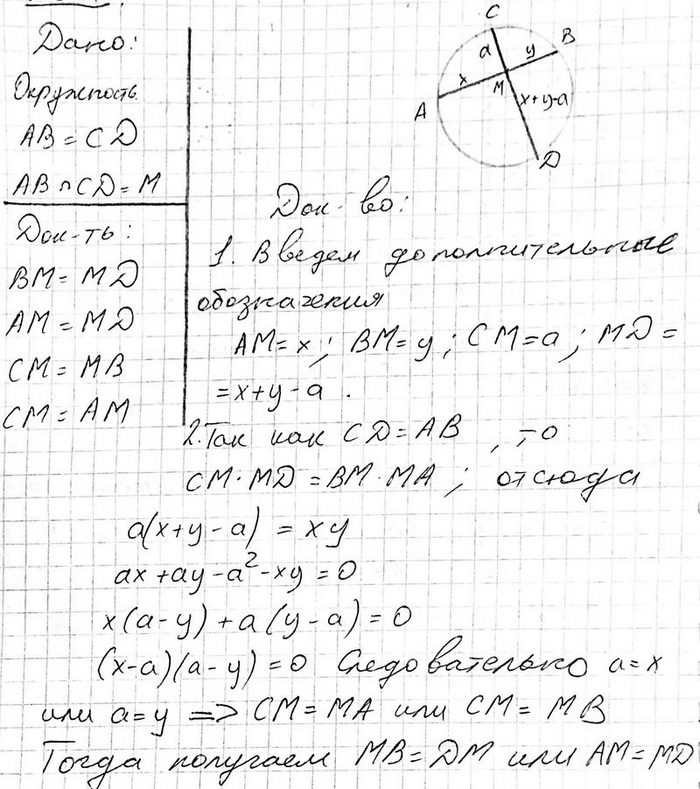 Дано:
Окружность
AB = CD
AB ∩ CD = M
Док-ть:
BM = MD
AM = MD
CM = MB
CM = AM
C
a
y
B
x
M
A
x+y-a
D
Док-во:
1. Введем дополнительные
обозначения
AM = x; BM = y; CM = a; MD =
= x+y-a.
2. Так как CD = AB, то
CM·MD = BM·MA; отсюда
a(x+y-a) = xy
ax+ay-a²-xy=0
x(a-y)+a(y-a)=0
(x-a)(a-y)=0 Следовательно a=x
или a=y => CM=MA или CM=MB
Тогда получаем MB=DM или AM=MD